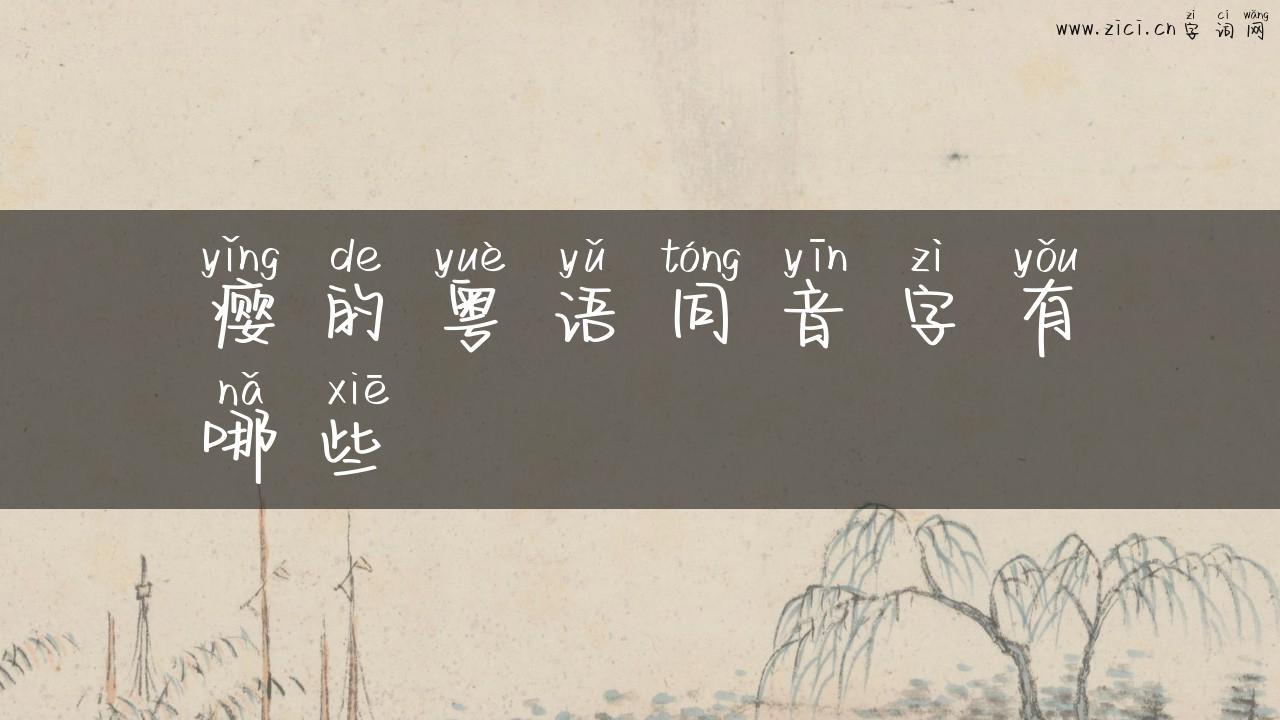 zì cí wǎng
www.zici.cn 字 词 网
yǐng de yuè yǔ tóng yīn zì yǒu
瘿 的 粤 语 同 音 字 有
nǎ xiē
哪 些